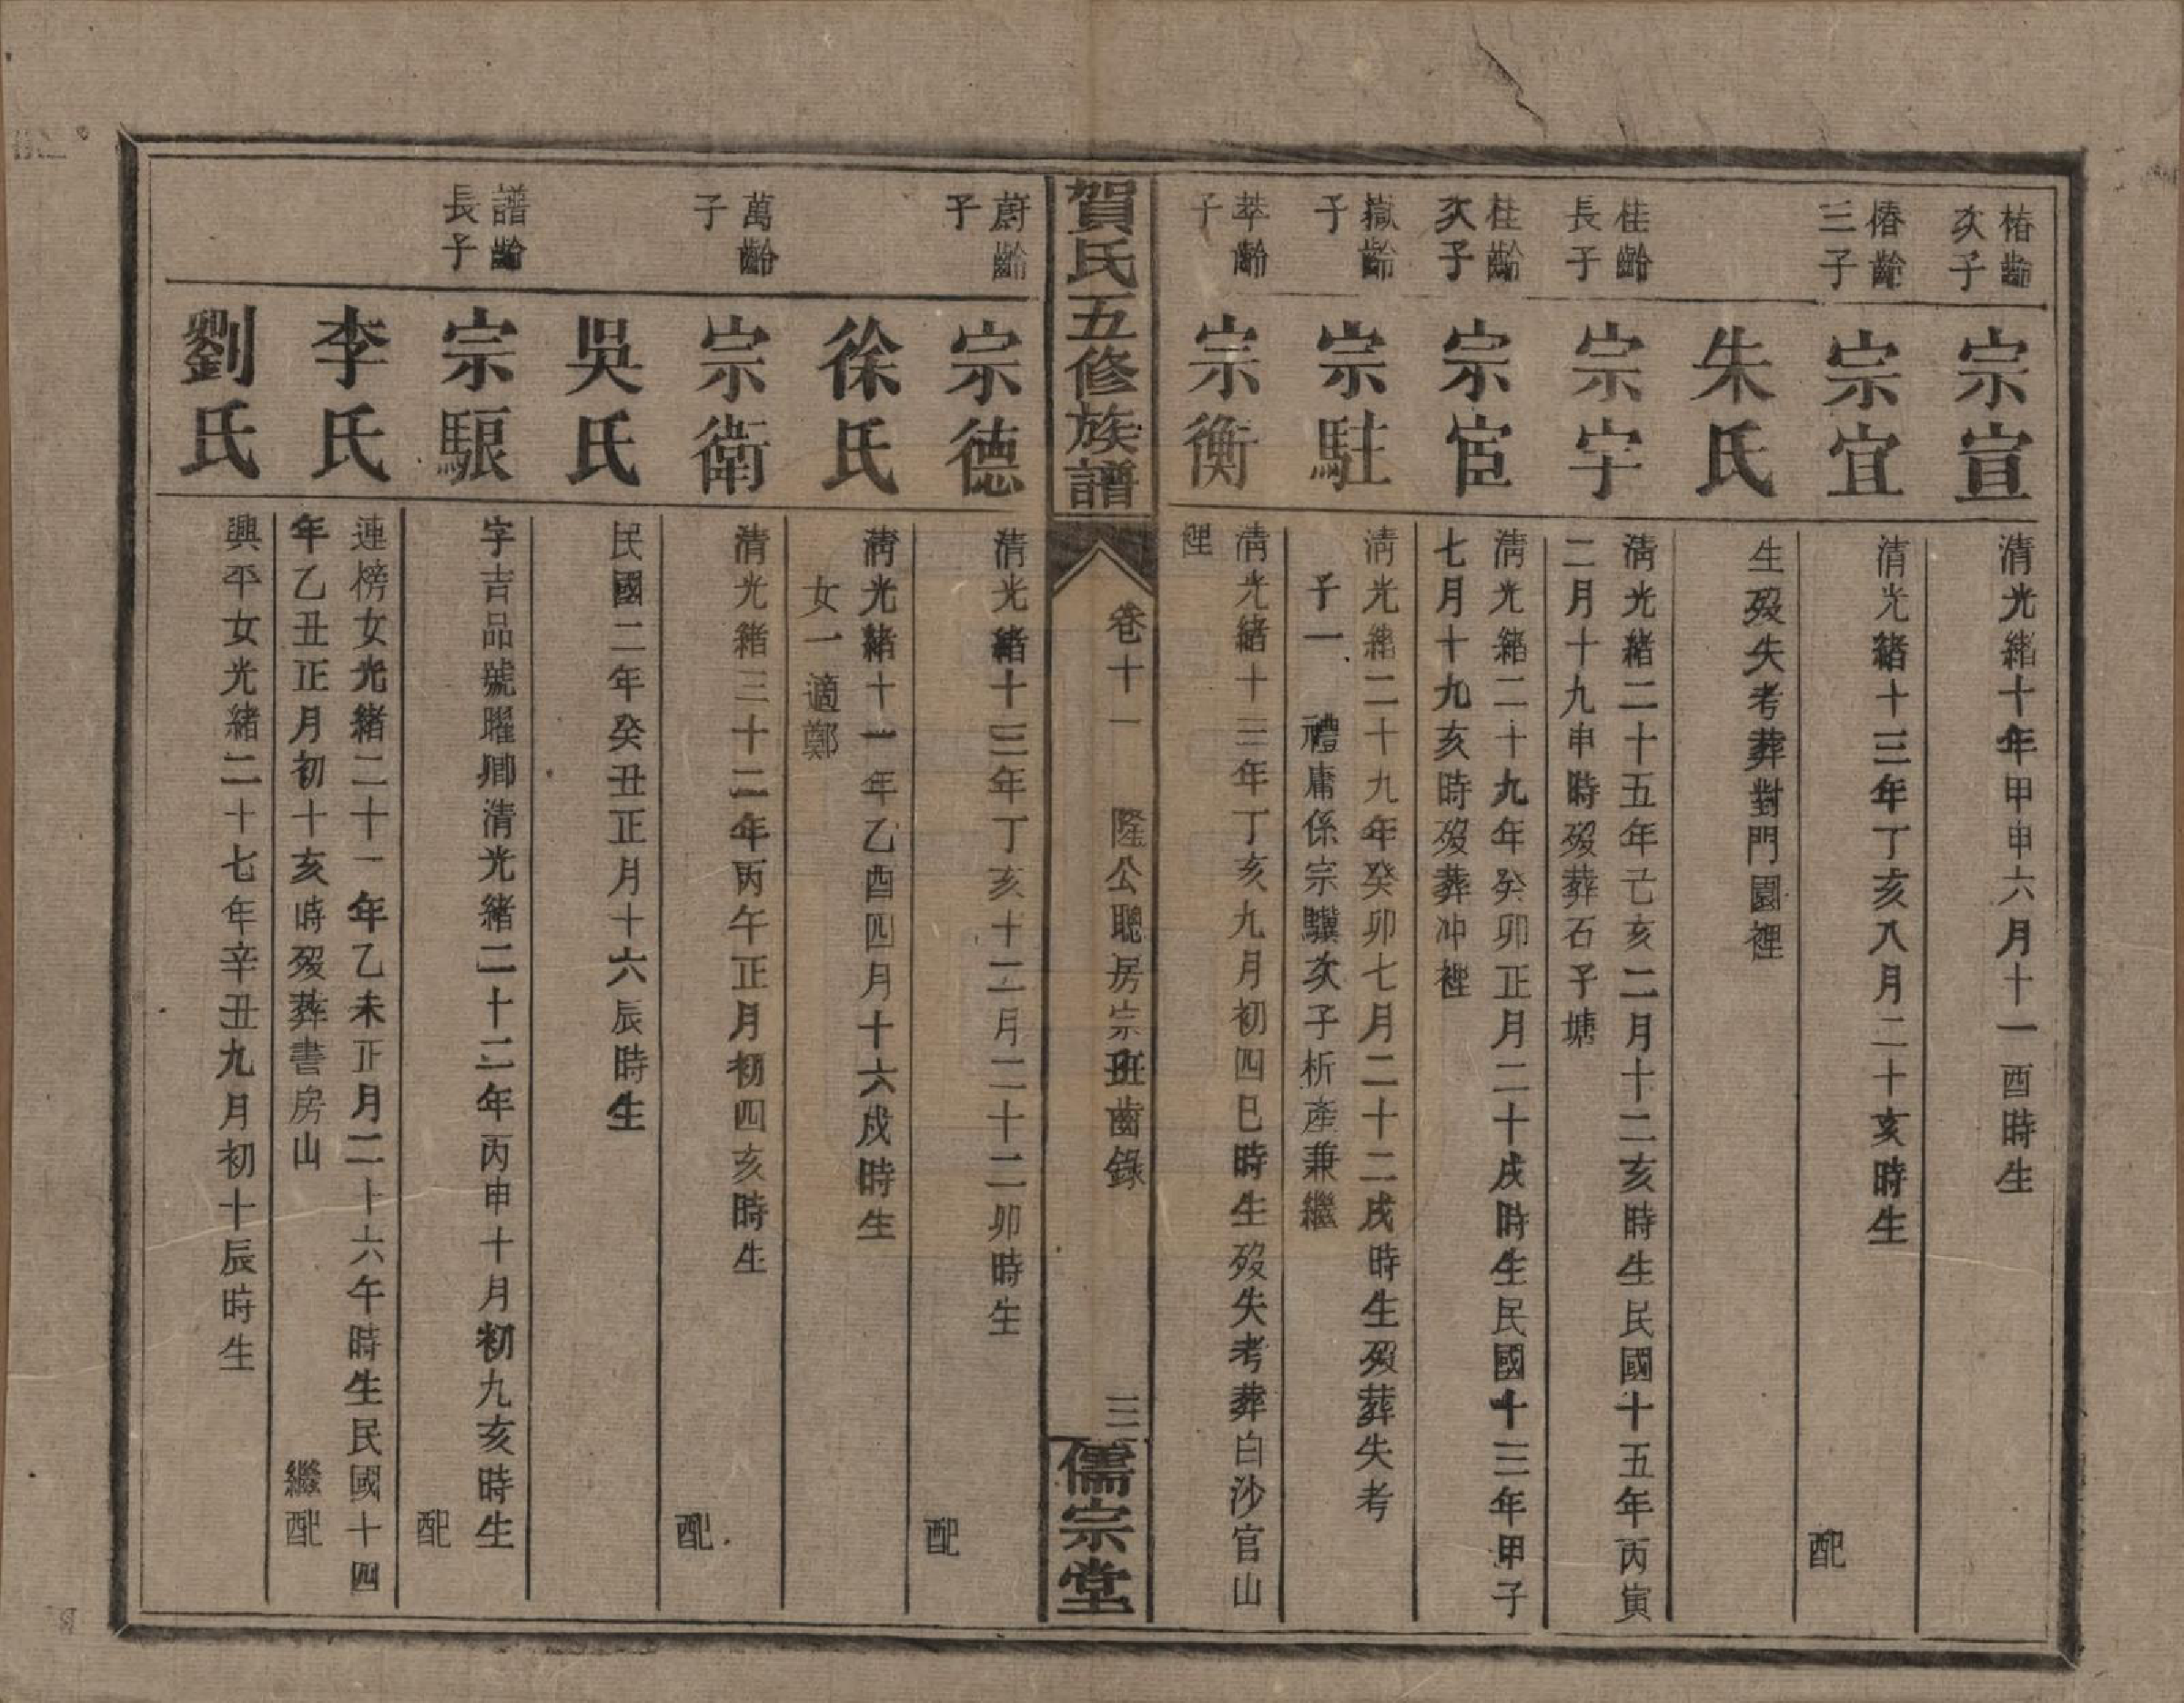 椿齡
次子
宗宣
清光緒十年甲申六月十一酉時生
椿齡
三子
宗宜
清光緒十三年丁亥八月二十亥時生
配
朱氏
生歿失考葬對門園裡
桂齡
長子
宗宇
清光緒二十五年己亥二月十二亥時生民國十五年丙寅
二月十九申時歿葬石子塘
桂齡
次子
宗宦
清光緒二十九年癸卯正月二十戌時生民國十三年甲子
七月十九亥時歿葬冲裡
嶽齡
子
宗駐
清光緒二十九年癸卯七月二十二戌時生歿葬失考
子一 禮庸係宗驥次子析產兼繼
萃齡
子
宗衡
清光緒十三年丁亥九月初四巳時生歿失考葬白沙官山
裡
賀氏五修族譜
卷十一
隆公聰房宗班齒錄
三
儒宗堂
蔚齡
子
宗德
清光緒十三年丁亥十二月二十二卯時生
配
徐氏
清光緒十一年乙酉四月十六戌時生
女一適鄭
萬齡
子
宗衛
清光緒三十二年丙午正月初四亥時生
配
吳氏
民國二年癸丑正月十六辰時生
譜齡
長子
宗駺
字吉品號曜卿清光緒二十二年丙申十月初九亥時生
配
李氏
連榜女光緒二十一年乙未正月二十六午時生民國十四
年乙丑正月初十亥時歿葬書房山
繼配
劉氏
興平女光緒二十七年辛丑九月初十辰時生